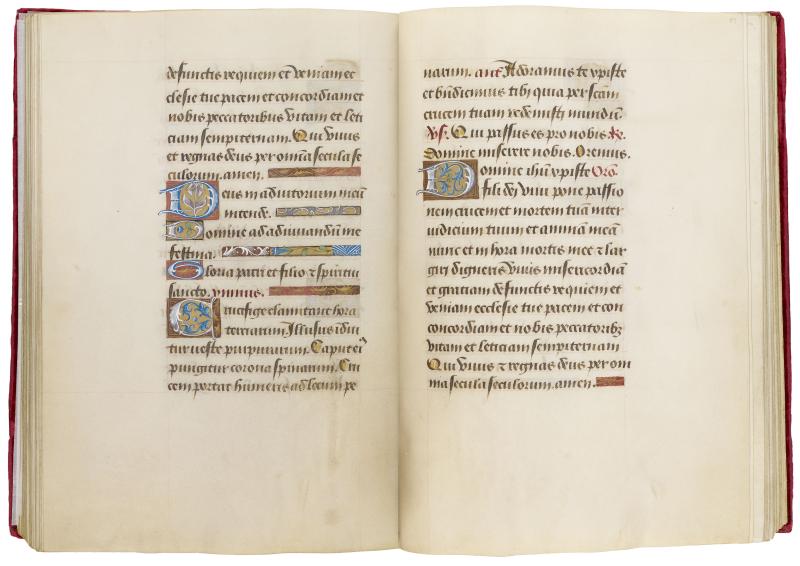 defunctis requiem et veniam et
clesie tue pacem et concordiam et
nobis peccatoribus vitam et leti
ciam sempiternam. Qui vivis
et regnas deus per omīa secula se
culorum. amen.
Deus in adiutorium meū
intende.
Domine ad adiuvandū me
festina.
Gloria patri et filio ⁊ spiritui
sancto. ymnus.
Crucifige clamitant hora
terciarum Illusus idui
tur veste purpurarum. Caput eiꝰ
pungitur corona spinarum. Cru
cem portat humeris ad locum pe
narum. ant̄. Adoramus te xp̄iste
et bn̄dicimus tibi quia per scām
crucem tuam redemisti mundū
Vs̄. Qui passus es pro nobis R̄.
Domine miserere nobis. Oremus.
Domine ihū xp̄iste Orō.
fili dei vivi pone passio
nem crucem et mortem tuā inter
iudicium tuum et animam meā
nunc et in hora mortis mee ⁊ lar
giri digneris vivis misericordiā
et gratiam defunctis requiem et
veniam ecclesie tue pacem et con
concordiam et nobis peccatoribꝫ
vitam et leticiam sempiternam
Qui vivis ⁊ regnas deus per om
nia secula seculorum. amen.